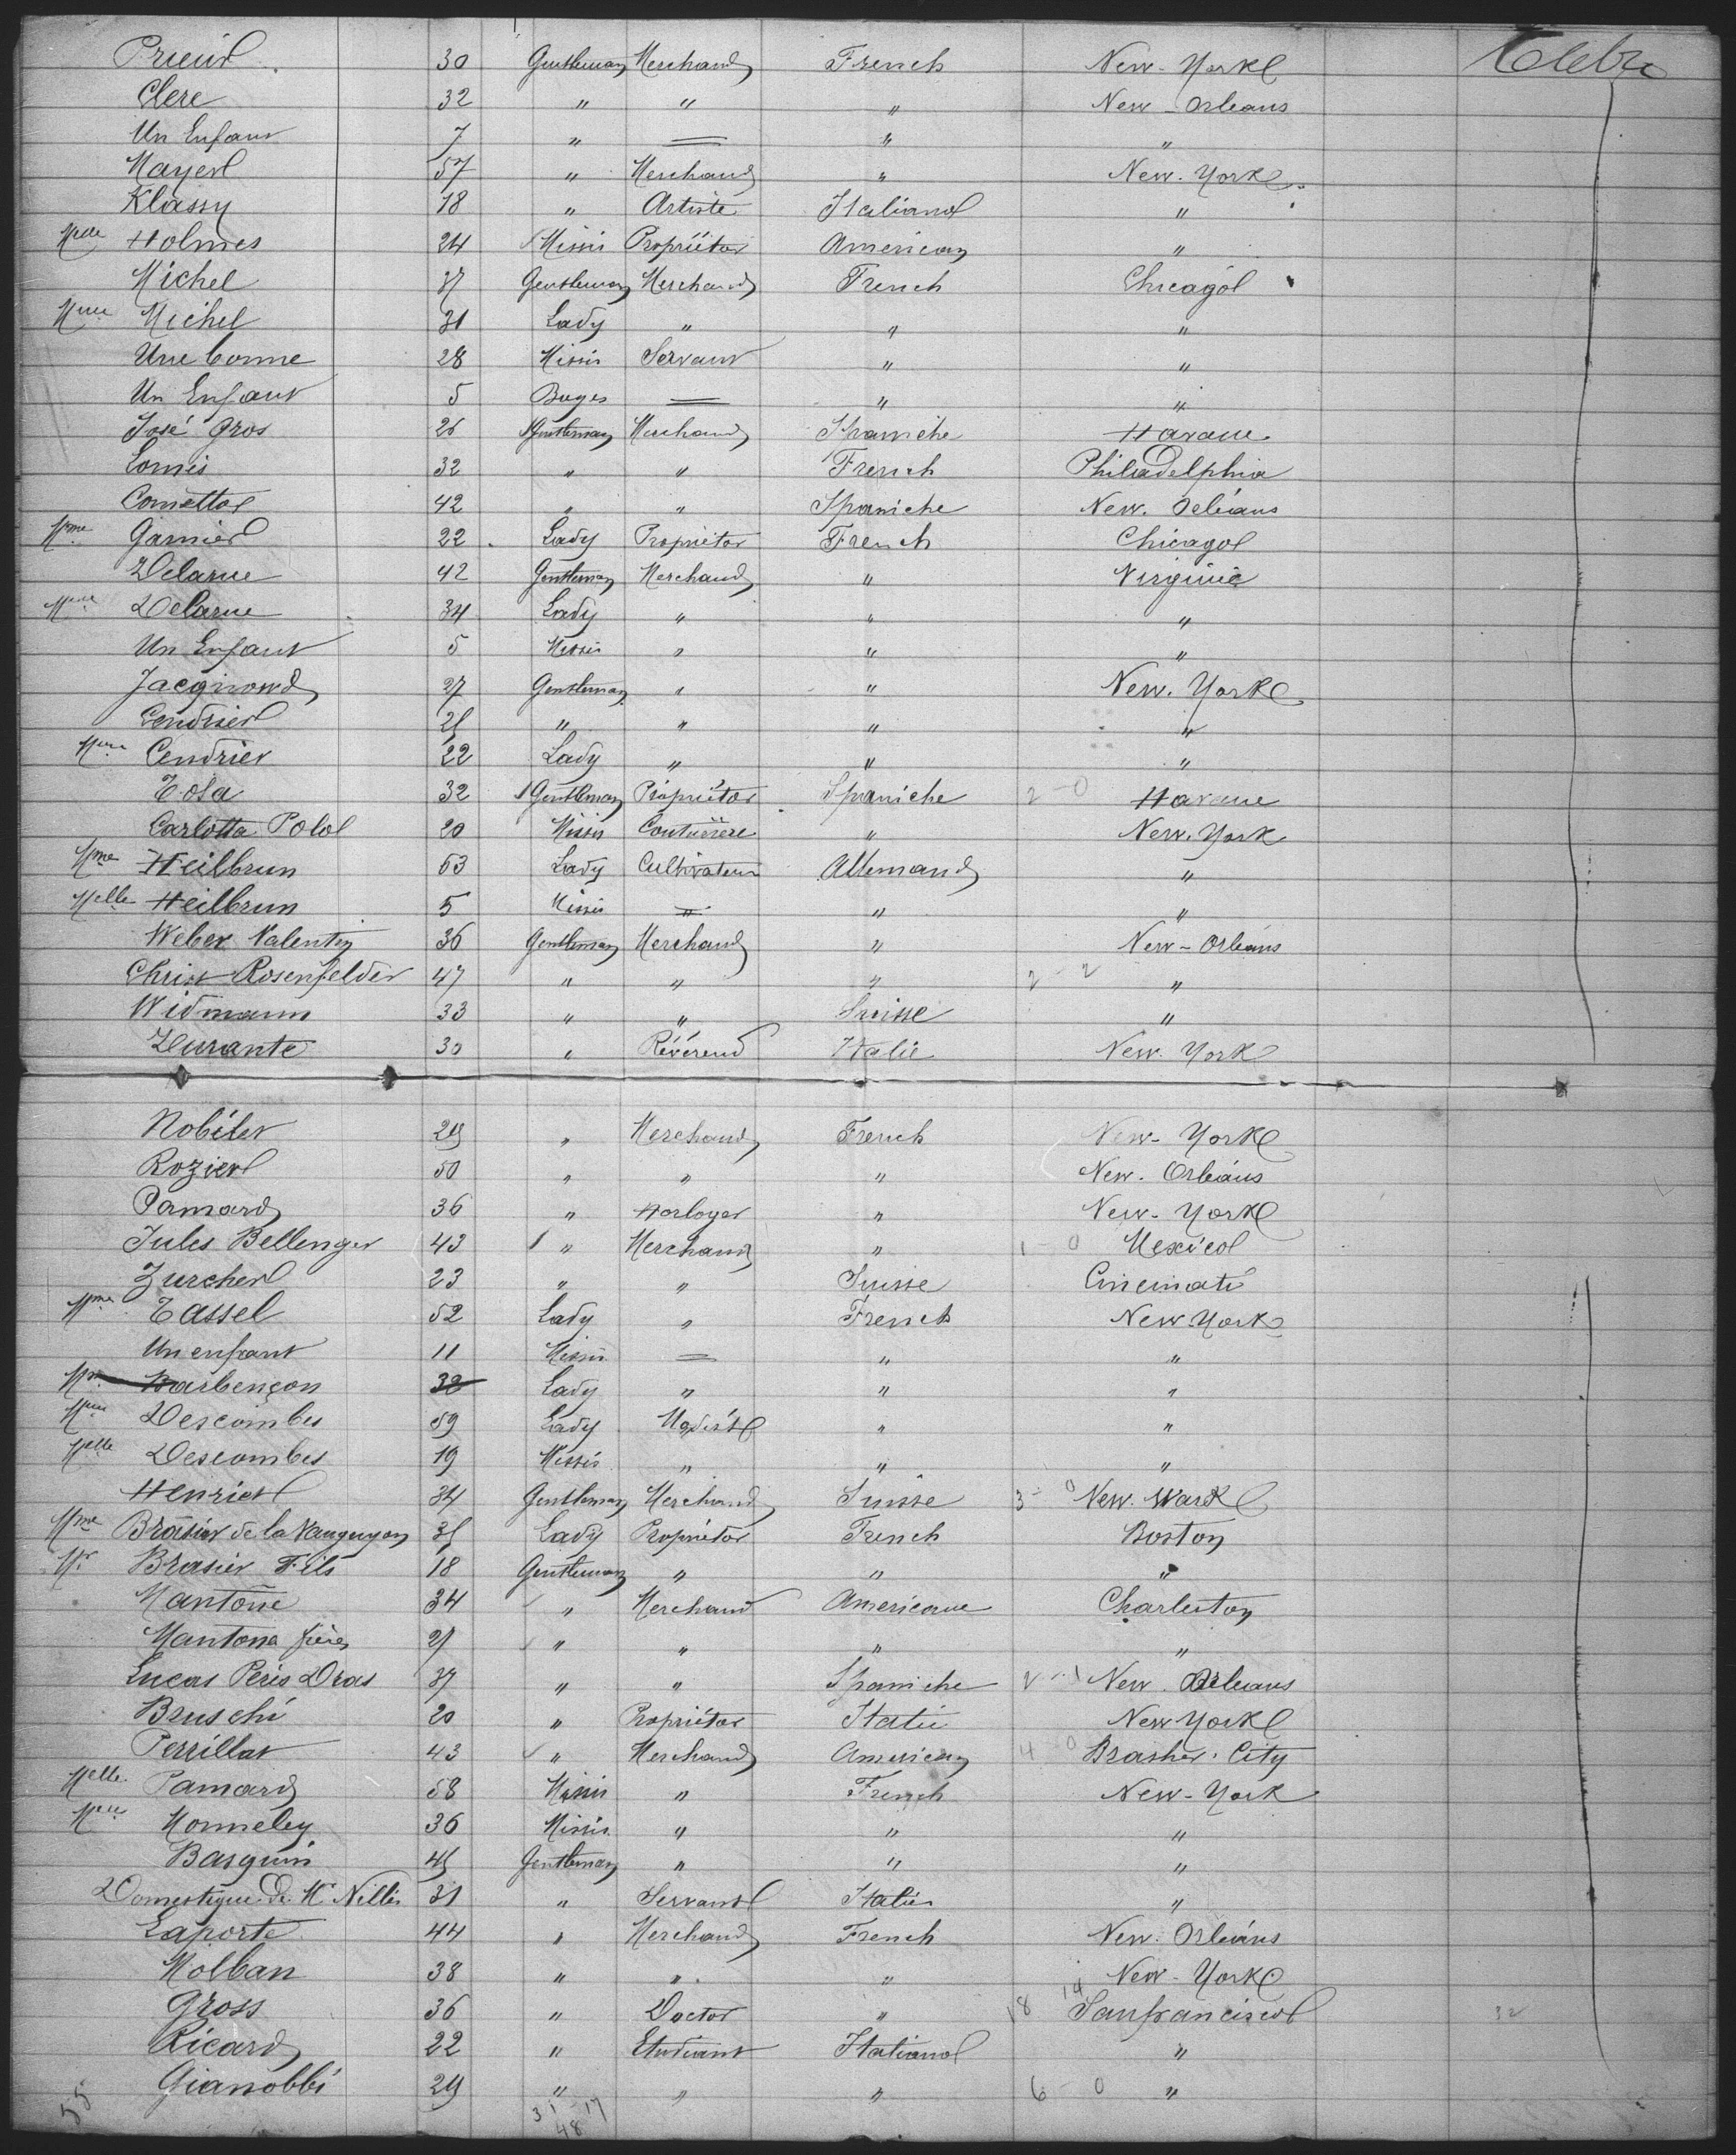 Prieur 30 Gentleman Merchand French New-York
Clere 32 " " " New-Orleans
Un Enfant 7 " = " "
Mayer 57 " Merchand " New-York
Klassy 18 " Artiste Italiano "
Melle Holmes 24 Missis Propriétor American "
Michel 37 Gentleman Merchand French Chicago
Mme Michel 31 Lady " " "
Une bonne 28 Missis Servant " "
Un Enfant 5 Boyes = " "
José Gros 26 Gentleman Merchand Spaniche Havane
Lomis 32 " " French Philadelphia
Comettos 42 " " Spaniche New. Orléans
Mme Garnier 22 Lady Propriétor French Chicago
Delarue 42 Gentleman Merchand " Virginie
Mme Delarue 34 Lady " " "
Un Enfant 5 Missis " " "
27 Gentleman " " New. York
Cendrier " " " "
Mme Cendrier 22 Lady " " "
Tosa 32 Gentleman Propriétor Spaniche 2-0 Havane
Carlotta Polo 20 Missis " New. York
Mme Heilbrun 53 Lady Cultivateur Allemand "
Melle Heilbrun 5 Missis " " "
Weber Valentin 36 Gentleman Merchand " New-Orléans
Christ Rosenfelder 47 " " " 2-2 "
Widmann 33 " " Suisse "
Durante 30 " Révérend Italie New York
Nobilet 29 " Merchand French New-York
Rozier 50 " " " New. Orléans
Pamard 36 " Horloger " New-York
Jules Bellenger 43 " Merchand " 1 0 Mexico
Zurcher 23 " " Suisse Cincinati
Mme Tassel 52 Lady " French New York
Un enfant 11 Missis = " "
Barbençon 32 Lady " " "
Mme Descombes 59 Lady Modiste " "
Melle Descombes 19 Missis " " "
Henrier 34 Gentleman Merchand Suisse 3-0 New. Wark
Mme Brasier de la Vauguyon Lady Propriétor French Boston
Mr Brasier Fils 18 Gentleman " " "
Mantoue 34 " Merchand Americaine Charleston
Mantoue frère 27 " " " "
Lucas Peris Dras 37 " " Spaniche 2-1 New. Orleans
Bruschi 20 " Propriétor Italie New York
Perrillat 43 " Merchand American 4 0 Brasher. City
Melle Pamard 58 Missis " French New-York
Monneley 36 Missis " " "
Basquin Gentleman " " "
Domestique De Mr Nillis 31 " Servant Italie "
Laporte 44 " Merchand French New. Orléans
Molban 38 " " " New-York
Gross 36 " Doctor " 18 14 Sanfrancisco 32
Ricard 22 " Etudiant Italiano "
Gianobbi 29 " " " 6-0 "
55 31-17
48